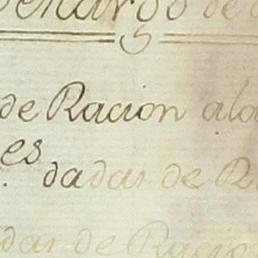 de Racion a la
es dadas de R
das de Racion